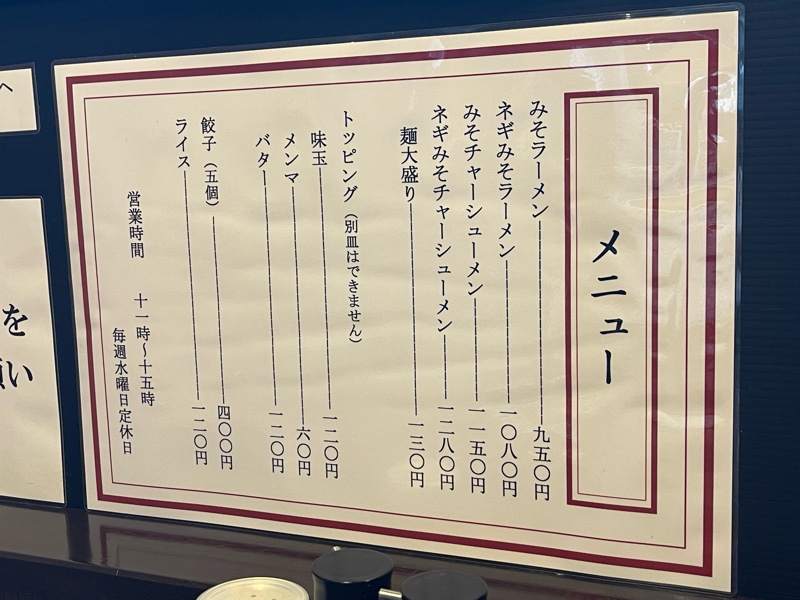 メニュー
みそラーメン 九五〇円
ネギみそラーメン 一〇八〇円
みそチャーシューメン 一一五〇円
ネギみそチャーシューメン 一二八〇円
麺大盛り 一三〇円
トッピング（別皿はできません）
味玉 一二〇円
メンマ 六〇円
バター 一二〇円
餃子（五個） 四〇〇円
ライス 一二〇円
営業時間 十一時～十五時
毎週水曜日定休日
へ
を
願い